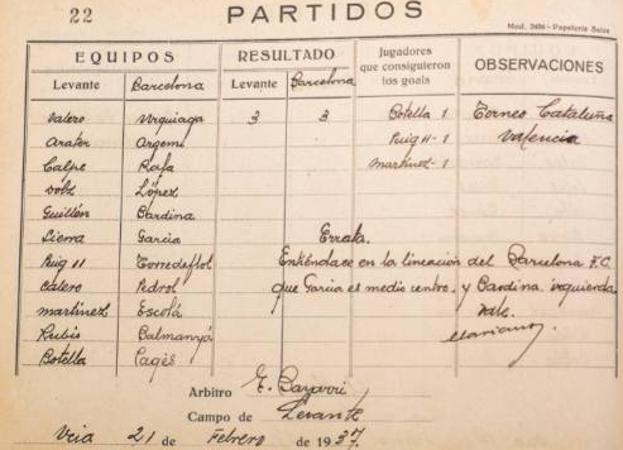 22 PARTIDOS
Mod. 2484 - Papelería Salas
EQUIPOS RESULTADO Jugadores que consiguieron los goals OBSERVACIONES
Levante Barcelona Levante Barcelona
Valero Urquiaga 3 3 Botella 1 Torneo Cataluña
Arater Argemí Puig II - 1 Valencia
Calpe Rafa Martínez - 1
Dolz López
Guillén Bardina
Sierra García Errata.
Puig II Torredeflot Entiéndace en la lineación del Barcelona F.C.
Calero Pedrol que García es medio centro. y Bardina izquierda
Martínez Escolá Vale.
Rubio Balmanyá
Botella Pagès
Arbitro E. Bayarri
Campo de Levante
Vcia 21 de Febrero de 1937.